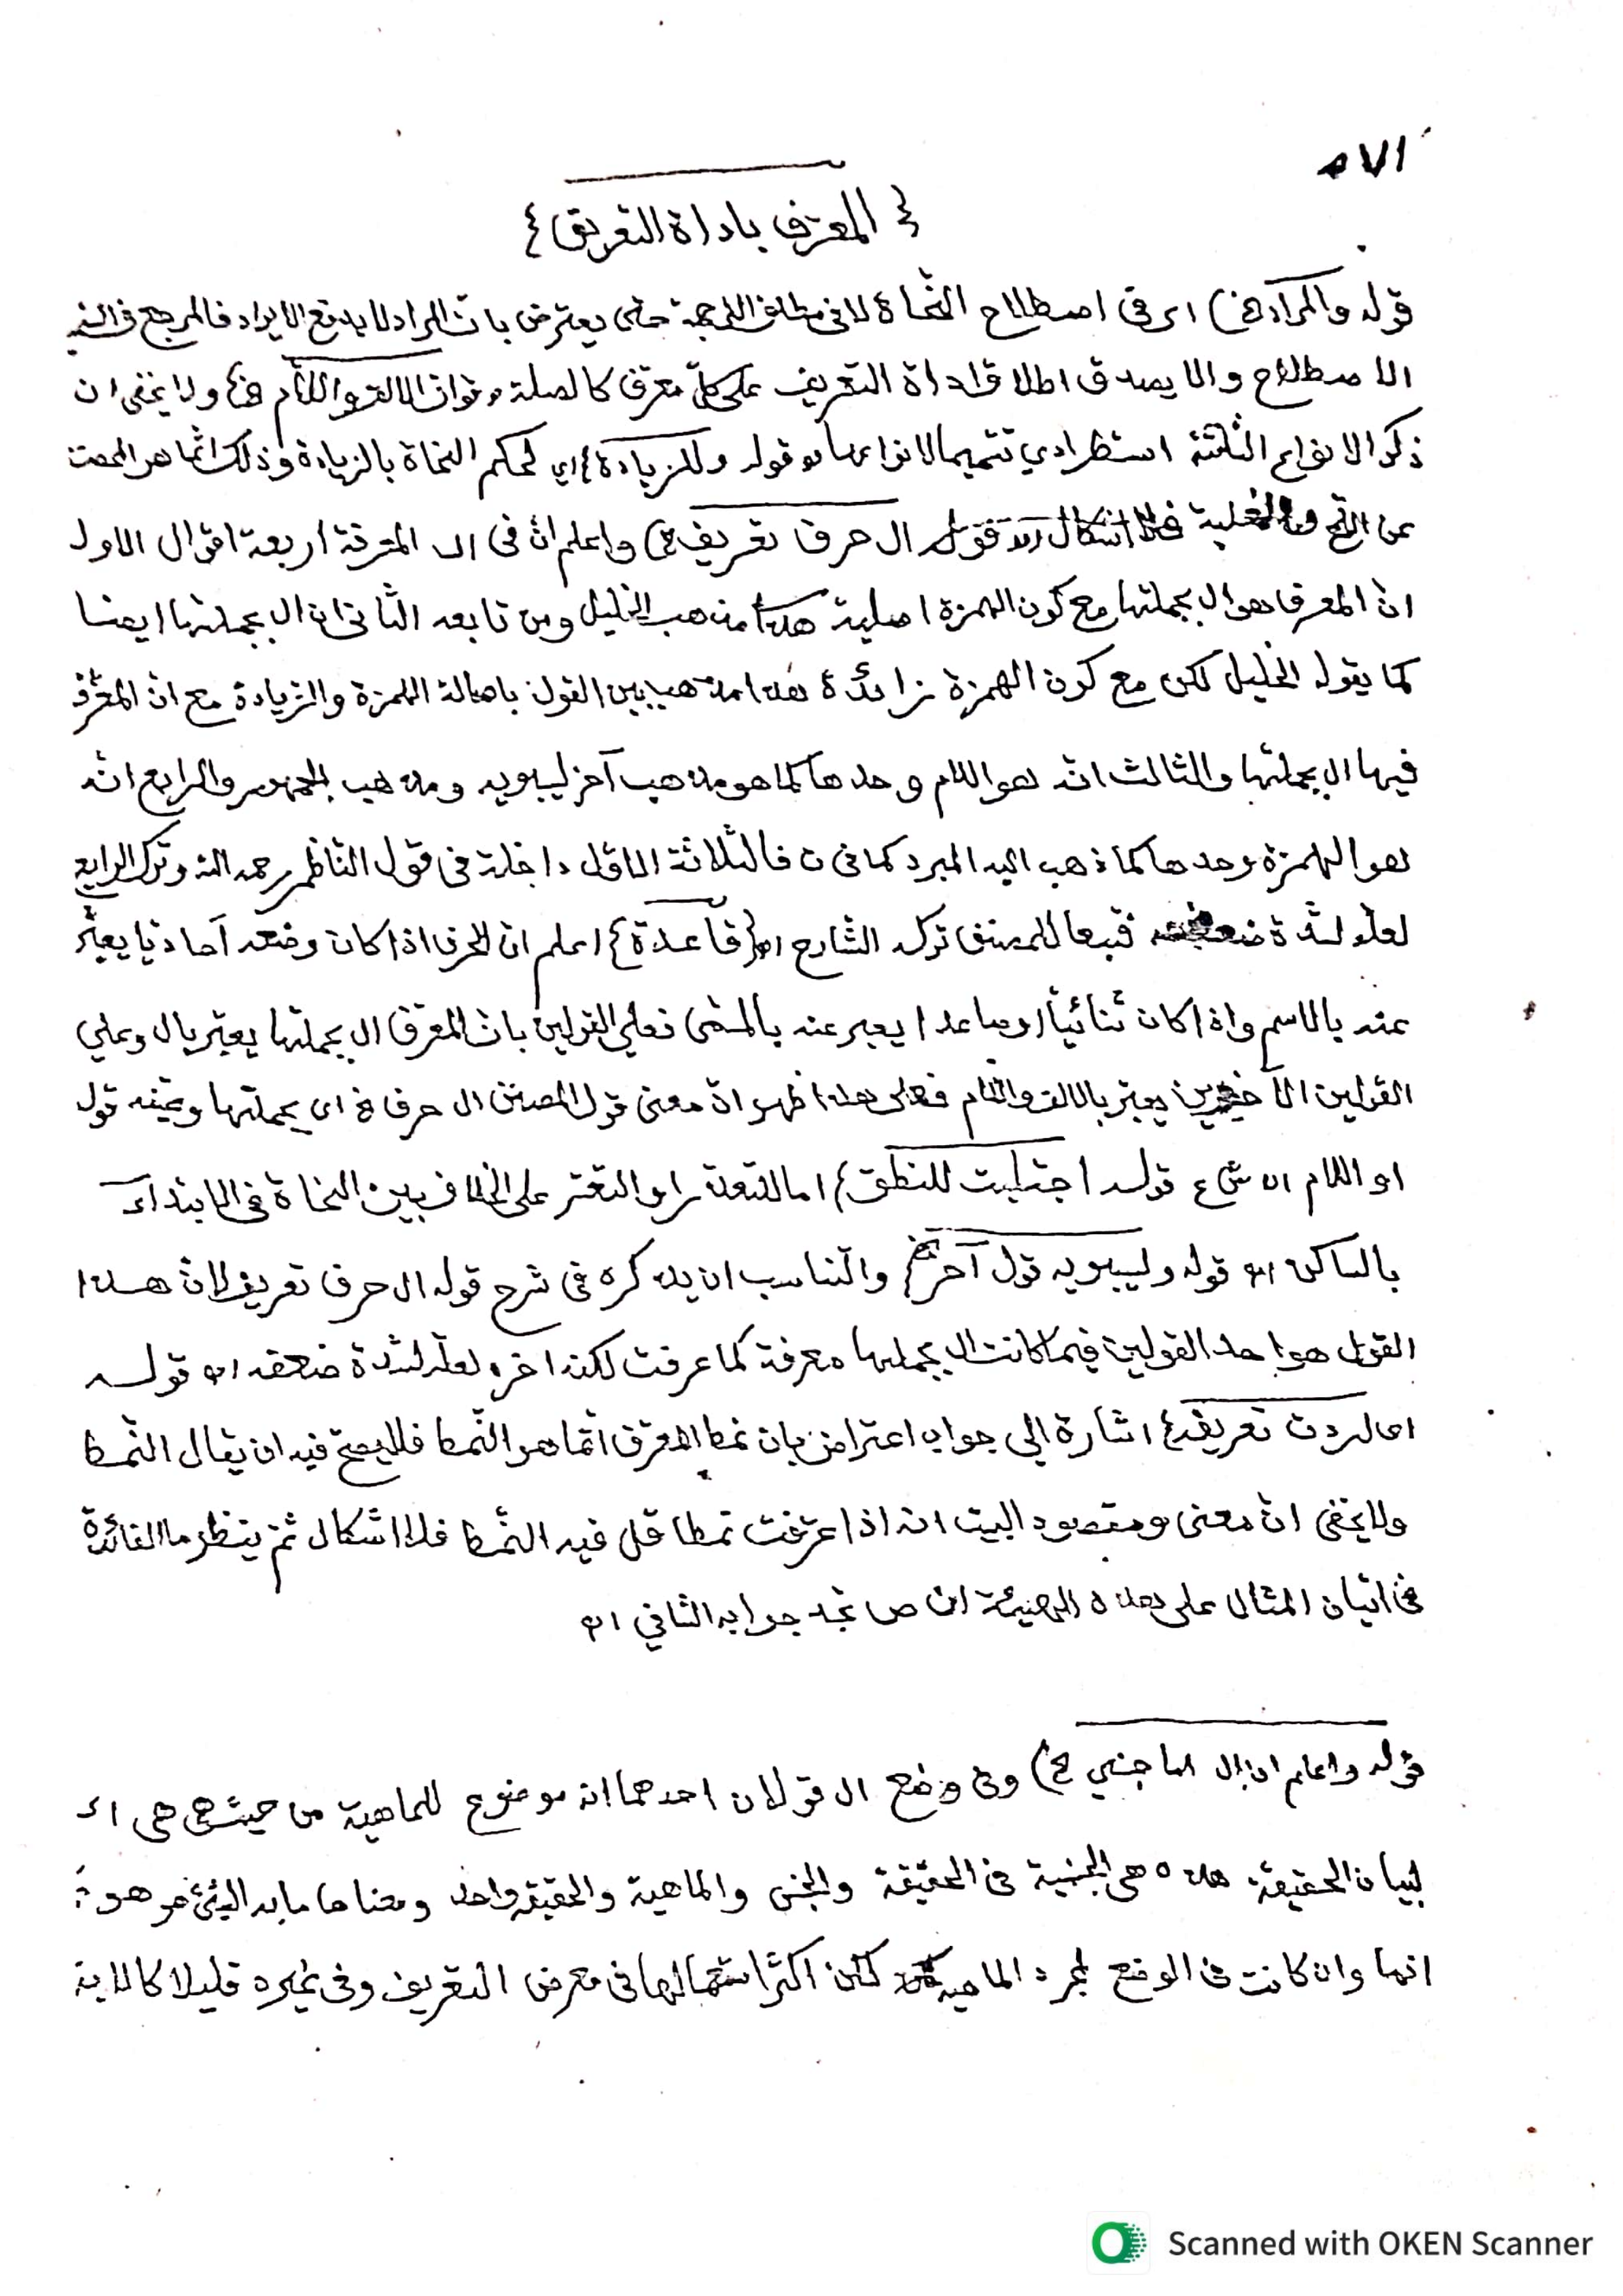 ١٧٥
{ المعرّف باداة التعريف }
قوله والمراد الخ) اى فى اصطلاح النُّحاة لا فى مطلق حتى يعترض بان المراد لا يدفع الايراد فالمرجع
الاصطلاح والا يصدق اطلاق اداة التعريف على كلّ معرّف كالصلة الالف واللّام الخ) ولا يخفى ان
ذكر الانواع الثلثة استطرادي تتميما لانواعها قوله وللزيادة) اي لحكم النحاة بالزيادة وذلك انّما هو
عن والغلبة فلا اشكال قوله ال حرف تعريف الخ) واعلم انّ فى ال المعرّفة اربعة اقوال الاول
انّ المعرف هو ال بجملتها مع كون الهمزة اصلية هذا مذهب الخليل ومن تابعه الثانى ان ال بجملتها ايضا
كما يقوله الخليل لكن مع كون الهمزة زائدة هذا مذهب بين القول باصالة الهمزة والزيادة مع انّ المعرّف
فيها ال بجملتها والثالث انّه هو اللام وحدها كما هو مذهب آخر لسيبويه ومذهب الجمهور والرابع انّه
هو الهمزة وحدها كما ذهب اليه المبرد كما فى ن فالثلاثة الاوّل داخلة فى قول النّاظم رحمه الله وترك الرابع
لعلّه لشدة ضعفه فتبعا للمصنف تركه الشارح اه {قاعدة} اعلم ان الحرف اذا كان وضعه آحاديّا يعبّر
عنه بالاسم واذا كان ثنائيّا اوصاعدا يعبر عنه بالمسمّى فعلى القولين بانّ المعرّف ال بجملتها يعبّر بال وعلى
القولين الأخيرين يعبّر بالالف واللام فعلى هذا ظهر انّ معنى قول المصنف ال حرف اى بجملتها قول
او اللام قوله اجتلبت للنطق) اما للتعذّر او التعسّر على الخلاف بين النحاة فى الابتداء
بالساكن اه قوله ولسيبويه قول آخر الخ) والمناسب ان يذكره فى شرح قوله ال حرف تعريف لانّ هذا
القول هو احد القولين فيما كانت ال بجملتها معرفة كما عرفت لكنه اخره لعلّه لشدة ضعفه اه قوله
اى اردت تعريفه) اشارة الى جواب اعتراض بان نمط المعرّف انّما هو النّمط فلا يصح فيه ان يقال النّمط
ولا يخفى انّ معنى ومقصود البيت انه اذا عرّفت نمطا قل فيه النّمط فلا اشكال ثمّ ينظر ما الفائدة
فى اتيان المثال على هذه الهيئة تجد جوابه الثاني اه
قوله واعلم ان ال اما جنسي الخ) وفى وضع ال قولان احدهما انه موضوع للماهية من حيث هى هى اى
لبيان الحقيقة هذه هى الجنسية فى الحقيقة والجنس والماهية والحقيقة واحد ومعناها ما به الشئ هو هو
انها وان كانت فى الوضع لمجرد الماهية لكن اكثر استعمالها فى معرض التعريف وفى غيره قليلا كالاية
Scanned with OKEN Scanner